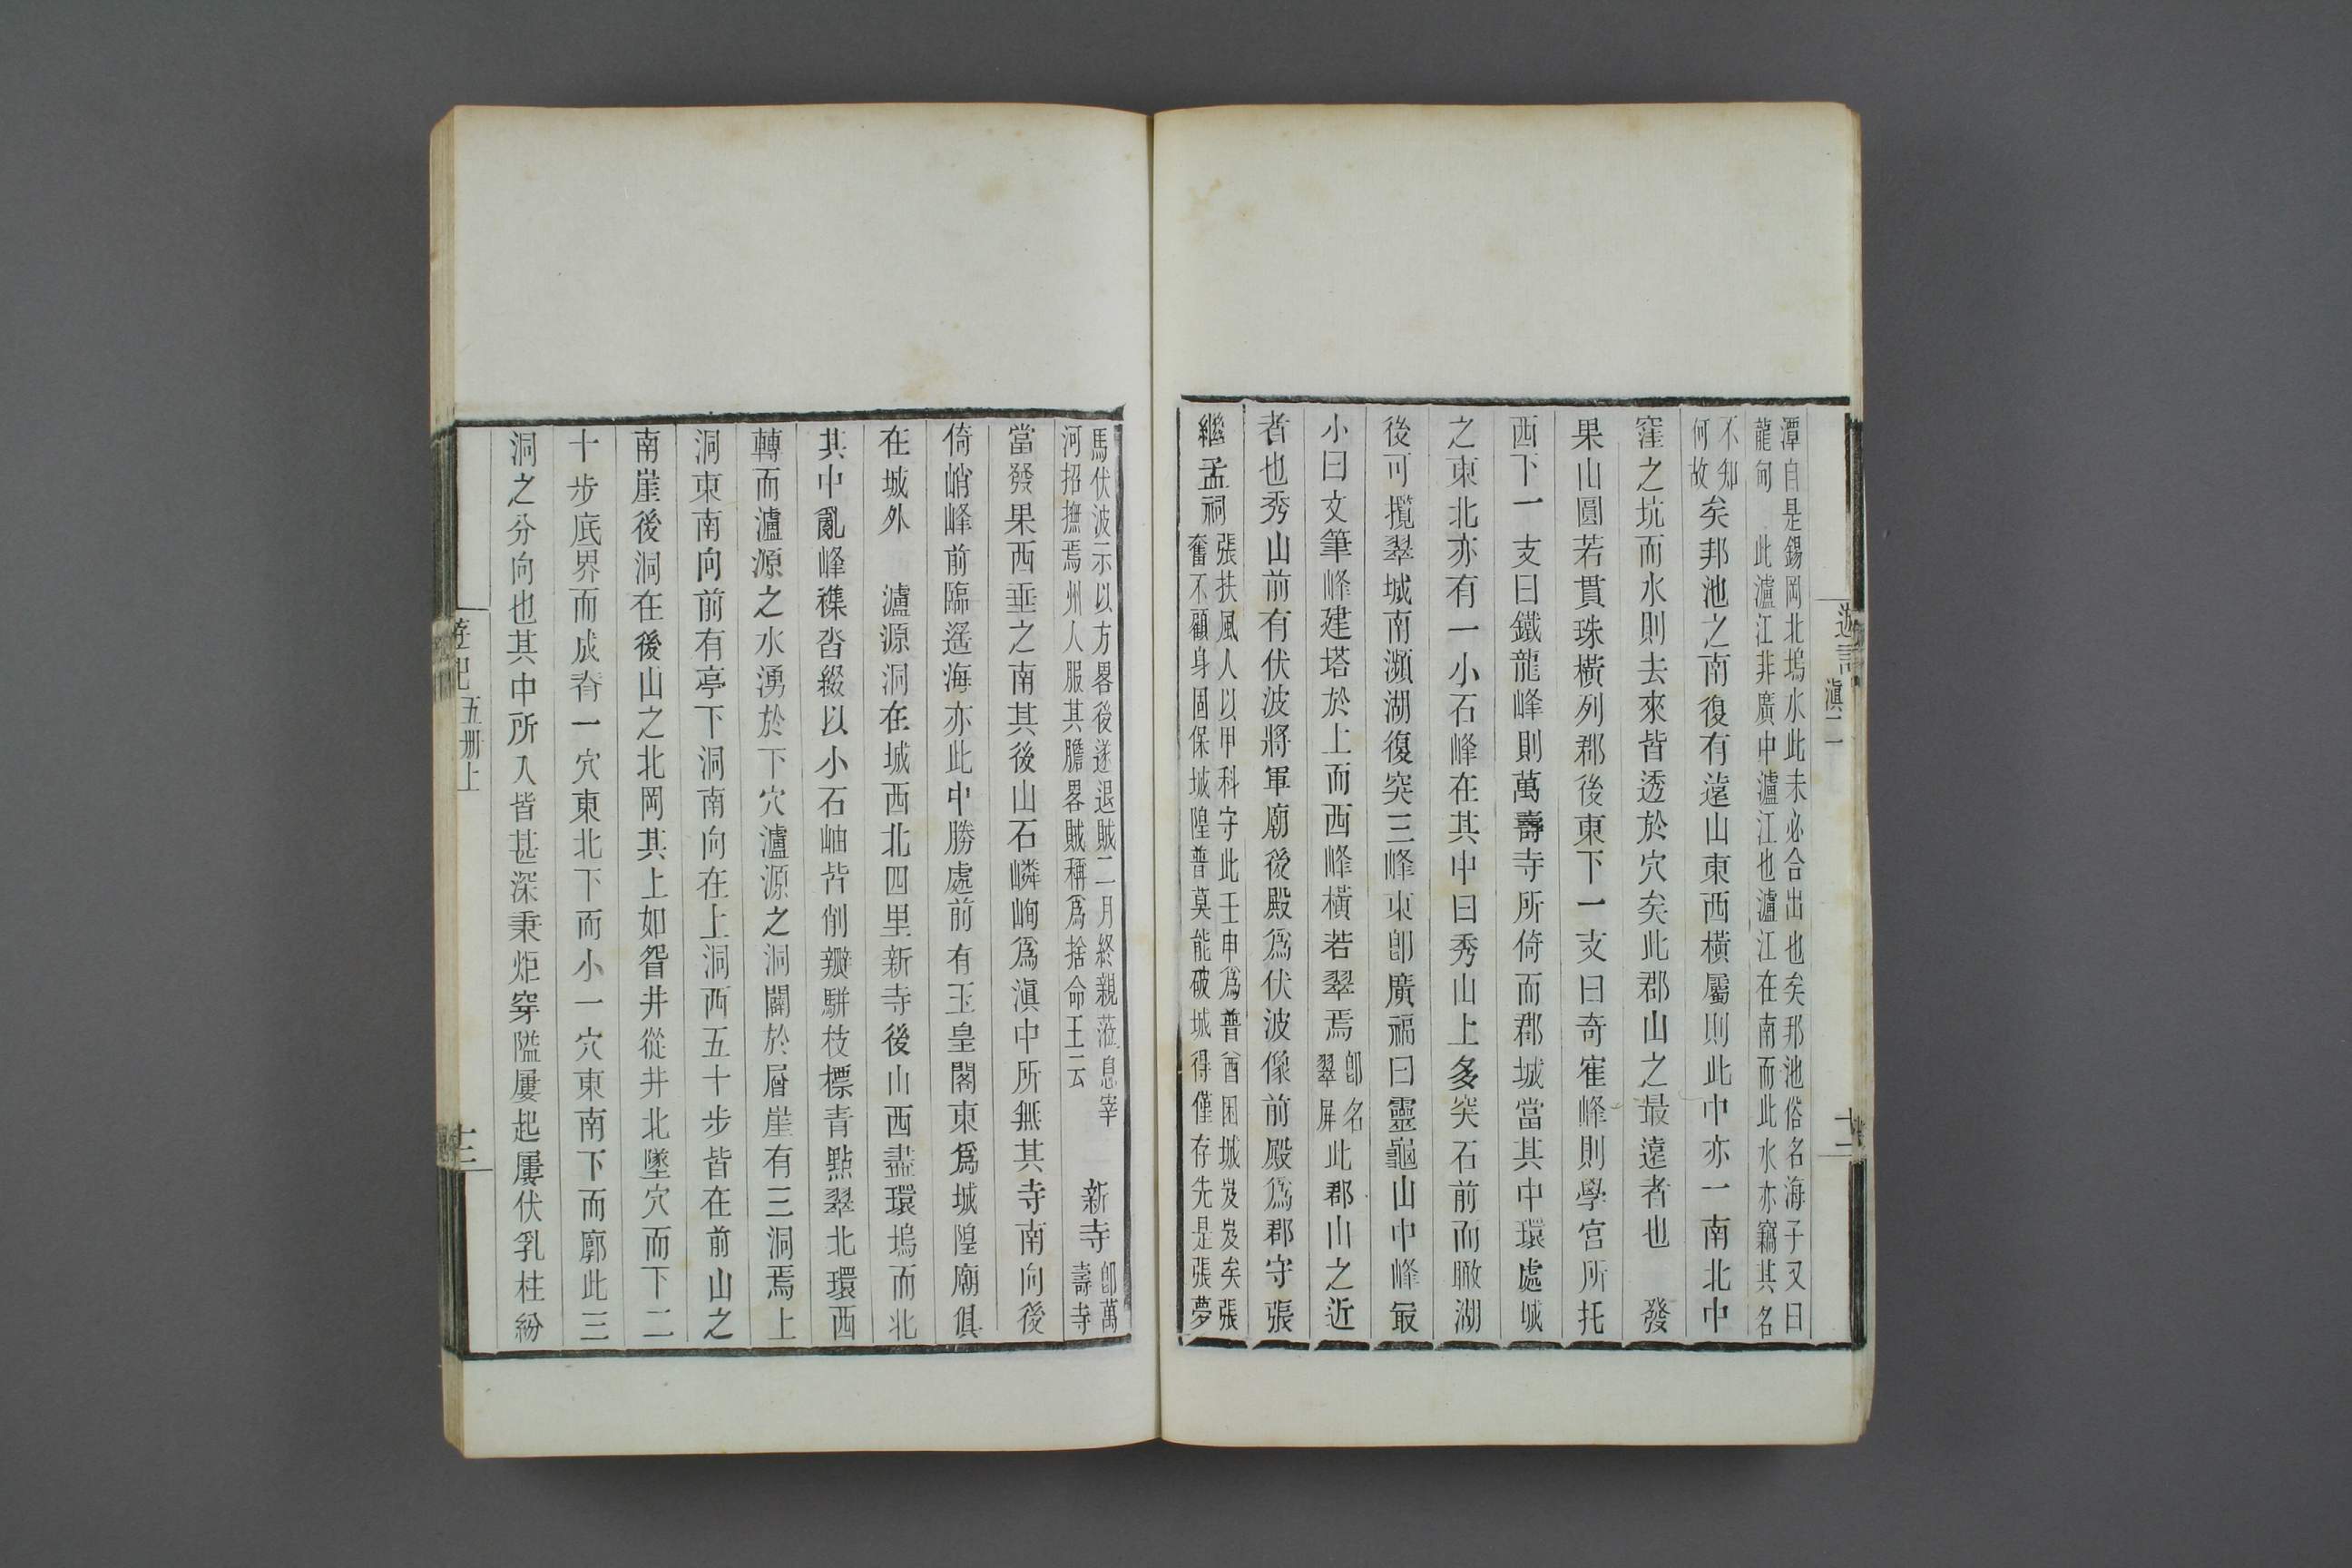 遊記 滇二 十二
潭自是錫岡北塢水此未必合出也矣邦池俗名海子又曰
龍甸 此瀘江非廣中瀘江也瀘江在南而此水亦竊其名
不知
何故
矣邦池之南復有遠山東西橫屬則此中亦一南北中
窪之坑而水則去來皆透於穴矣此郡山之最遠者也 發
果山圓若貫珠橫列郡後東下一支曰奇崔峰則學宮所托
西下一支曰鐵龍峰則萬壽寺所倚而郡城當其中環處城
之東北亦有一小石峰在其中曰秀山上多突石前而瞰湖
後可攬翠城南瀕湖復突三峰東卽廣福曰靈龜山中峰最
小曰文筆峰建塔於上而西峰橫若翠焉
卽名
翠屏
此郡山之近
者也秀山前有伏波將軍廟後殿爲伏波像前殿爲郡守張
繼孟祠
張扶風人以甲科守此壬申爲普酋困城岌岌矣張
奮不顧身固保城隍普莫能破城得僅存先是張夢
馬伏波示以方畧後遂退賊二月終親蒞息宰
河招撫焉州人服其膽畧賊稱爲捨命王云
新寺
卽萬
壽寺
當發果西垂之南其後山石嶙峋爲滇中所無其寺南向後
倚峭峰前臨遙海亦此中勝處前有玉皇閣東爲城隍廟俱
在城外 瀘源洞在城西北四里新寺後山西盡環塢而北
其中亂峰襍沓綴以小石岫皆削瓣駢枝標青點翠北環西
轉而瀘源之水湧於下穴瀘源之洞闢於層崖有三洞焉上
洞東南向前有亭下洞南向在上洞西五十步皆在前山之
南崖後洞在後山之北岡其上如眢井從井北墜穴而下二
十步底界而成脊一穴東北下而小一穴東南下而廓此三
洞之分向也其中所入皆甚深秉炬穿隘屢起屢伏乳柱紛
遊記 五册上 十三